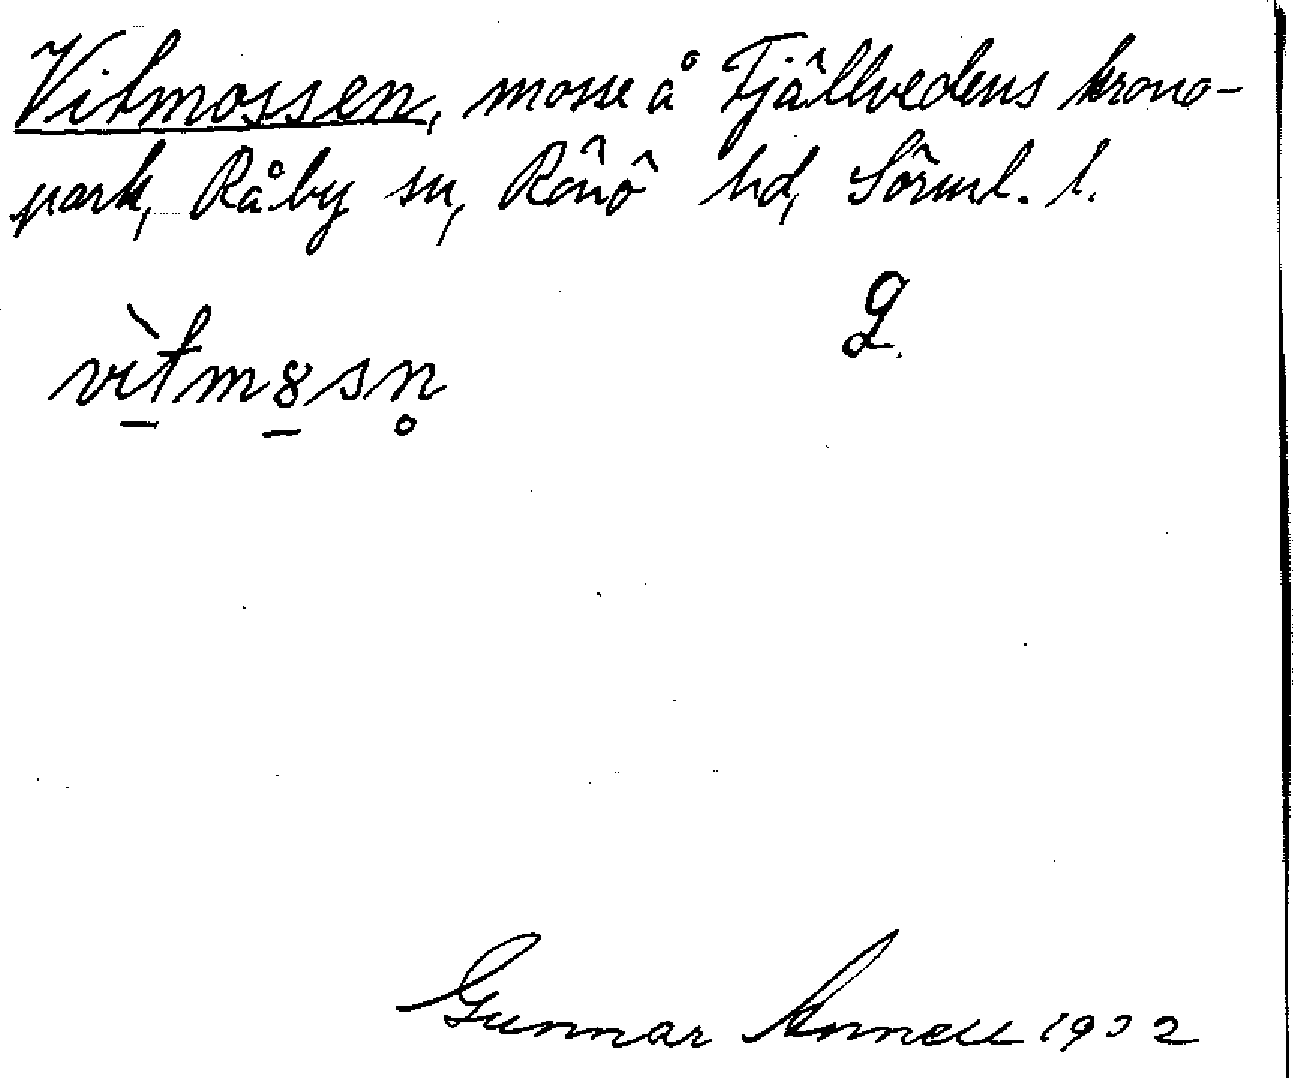 Vitmossen, mosse å Fjällvedens krono-
park, Råby sn, Rönö hd, Sörml. l.
vìtm8sn̥
Gunnar Annell 1932